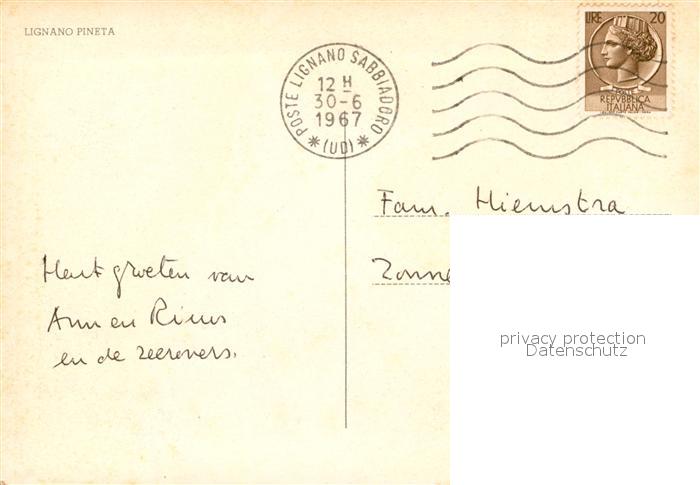 LIGNANO PINETA
POSTE LIGNANO SABBIADORO
12 H
30-6
1967
* (UD) *
LIRE 20
REPVBBLICA
ITALIANA
Fam. Hiemstra
Zonne
Hart. groeten van
Ann en Rinus
en de zeerovers.
privacy protection
Datenschutz